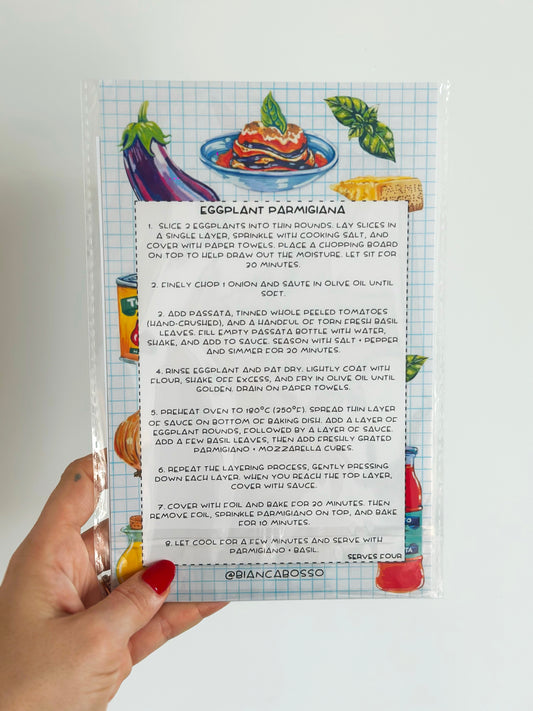 EGGPLANT PARMIGIANA
1. SLICE 2 EGGPLANTS INTO THIN ROUNDS. LAY SLICES IN
A SINGLE LAYER, SPRINKLE WITH COOKING SALT, AND
COVER WITH PAPER TOWELS. PLACE A CHOPPING BOARD
ON TOP TO HELP DRAW OUT THE MOISTURE. LET SIT FOR
20 MINUTES.
2. FINELY CHOP 1 ONION AND SAUTE IN OLIVE OIL UNTIL
SOFT.
3. ADD PASSATA, TINNED WHOLE PEELED TOMATOES
(HAND-CRUSHED), AND A HANDFUL OF TORN FRESH BASIL
LEAVES. FILL EMPTY PASSATA BOTTLE WITH WATER,
SHAKE, AND ADD TO SAUCE. SEASON WITH SALT + PEPPER
AND SIMMER FOR 20 MINUTES.
4. RINSE EGGPLANT AND PAT DRY. LIGHTLY COAT WITH
FLOUR, SHAKE OFF EXCESS, AND FRY IN OLIVE OIL UNTIL
GOLDEN. DRAIN ON PAPER TOWELS.
5. PREHEAT OVEN TO 180°C (350°F). SPREAD THIN LAYER
OF SAUCE ON BOTTOM OF BAKING DISH. ADD A LAYER OF
EGGPLANT ROUNDS, FOLLOWED BY A LAYER OF SAUCE.
ADD A FEW BASIL LEAVES, THEN ADD FRESHLY GRATED
PARMIGIANO + MOZZARELLA CUBES.
6. REPEAT THE LAYERING PROCESS, GENTLY PRESSING
DOWN EACH LAYER. WHEN YOU REACH THE TOP LAYER,
COVER WITH SAUCE.
7. COVER WITH FOIL AND BAKE FOR 30 MINUTES. THEN
REMOVE FOIL, SPRINKLE PARMIGIANO ON TOP, AND BAKE
FOR 10 MINUTES.
8. LET COOL FOR A FEW MINUTES AND SERVE WITH
PARMIGIANO + BASIL.
SERVES FOUR
@BIANCABOSSO